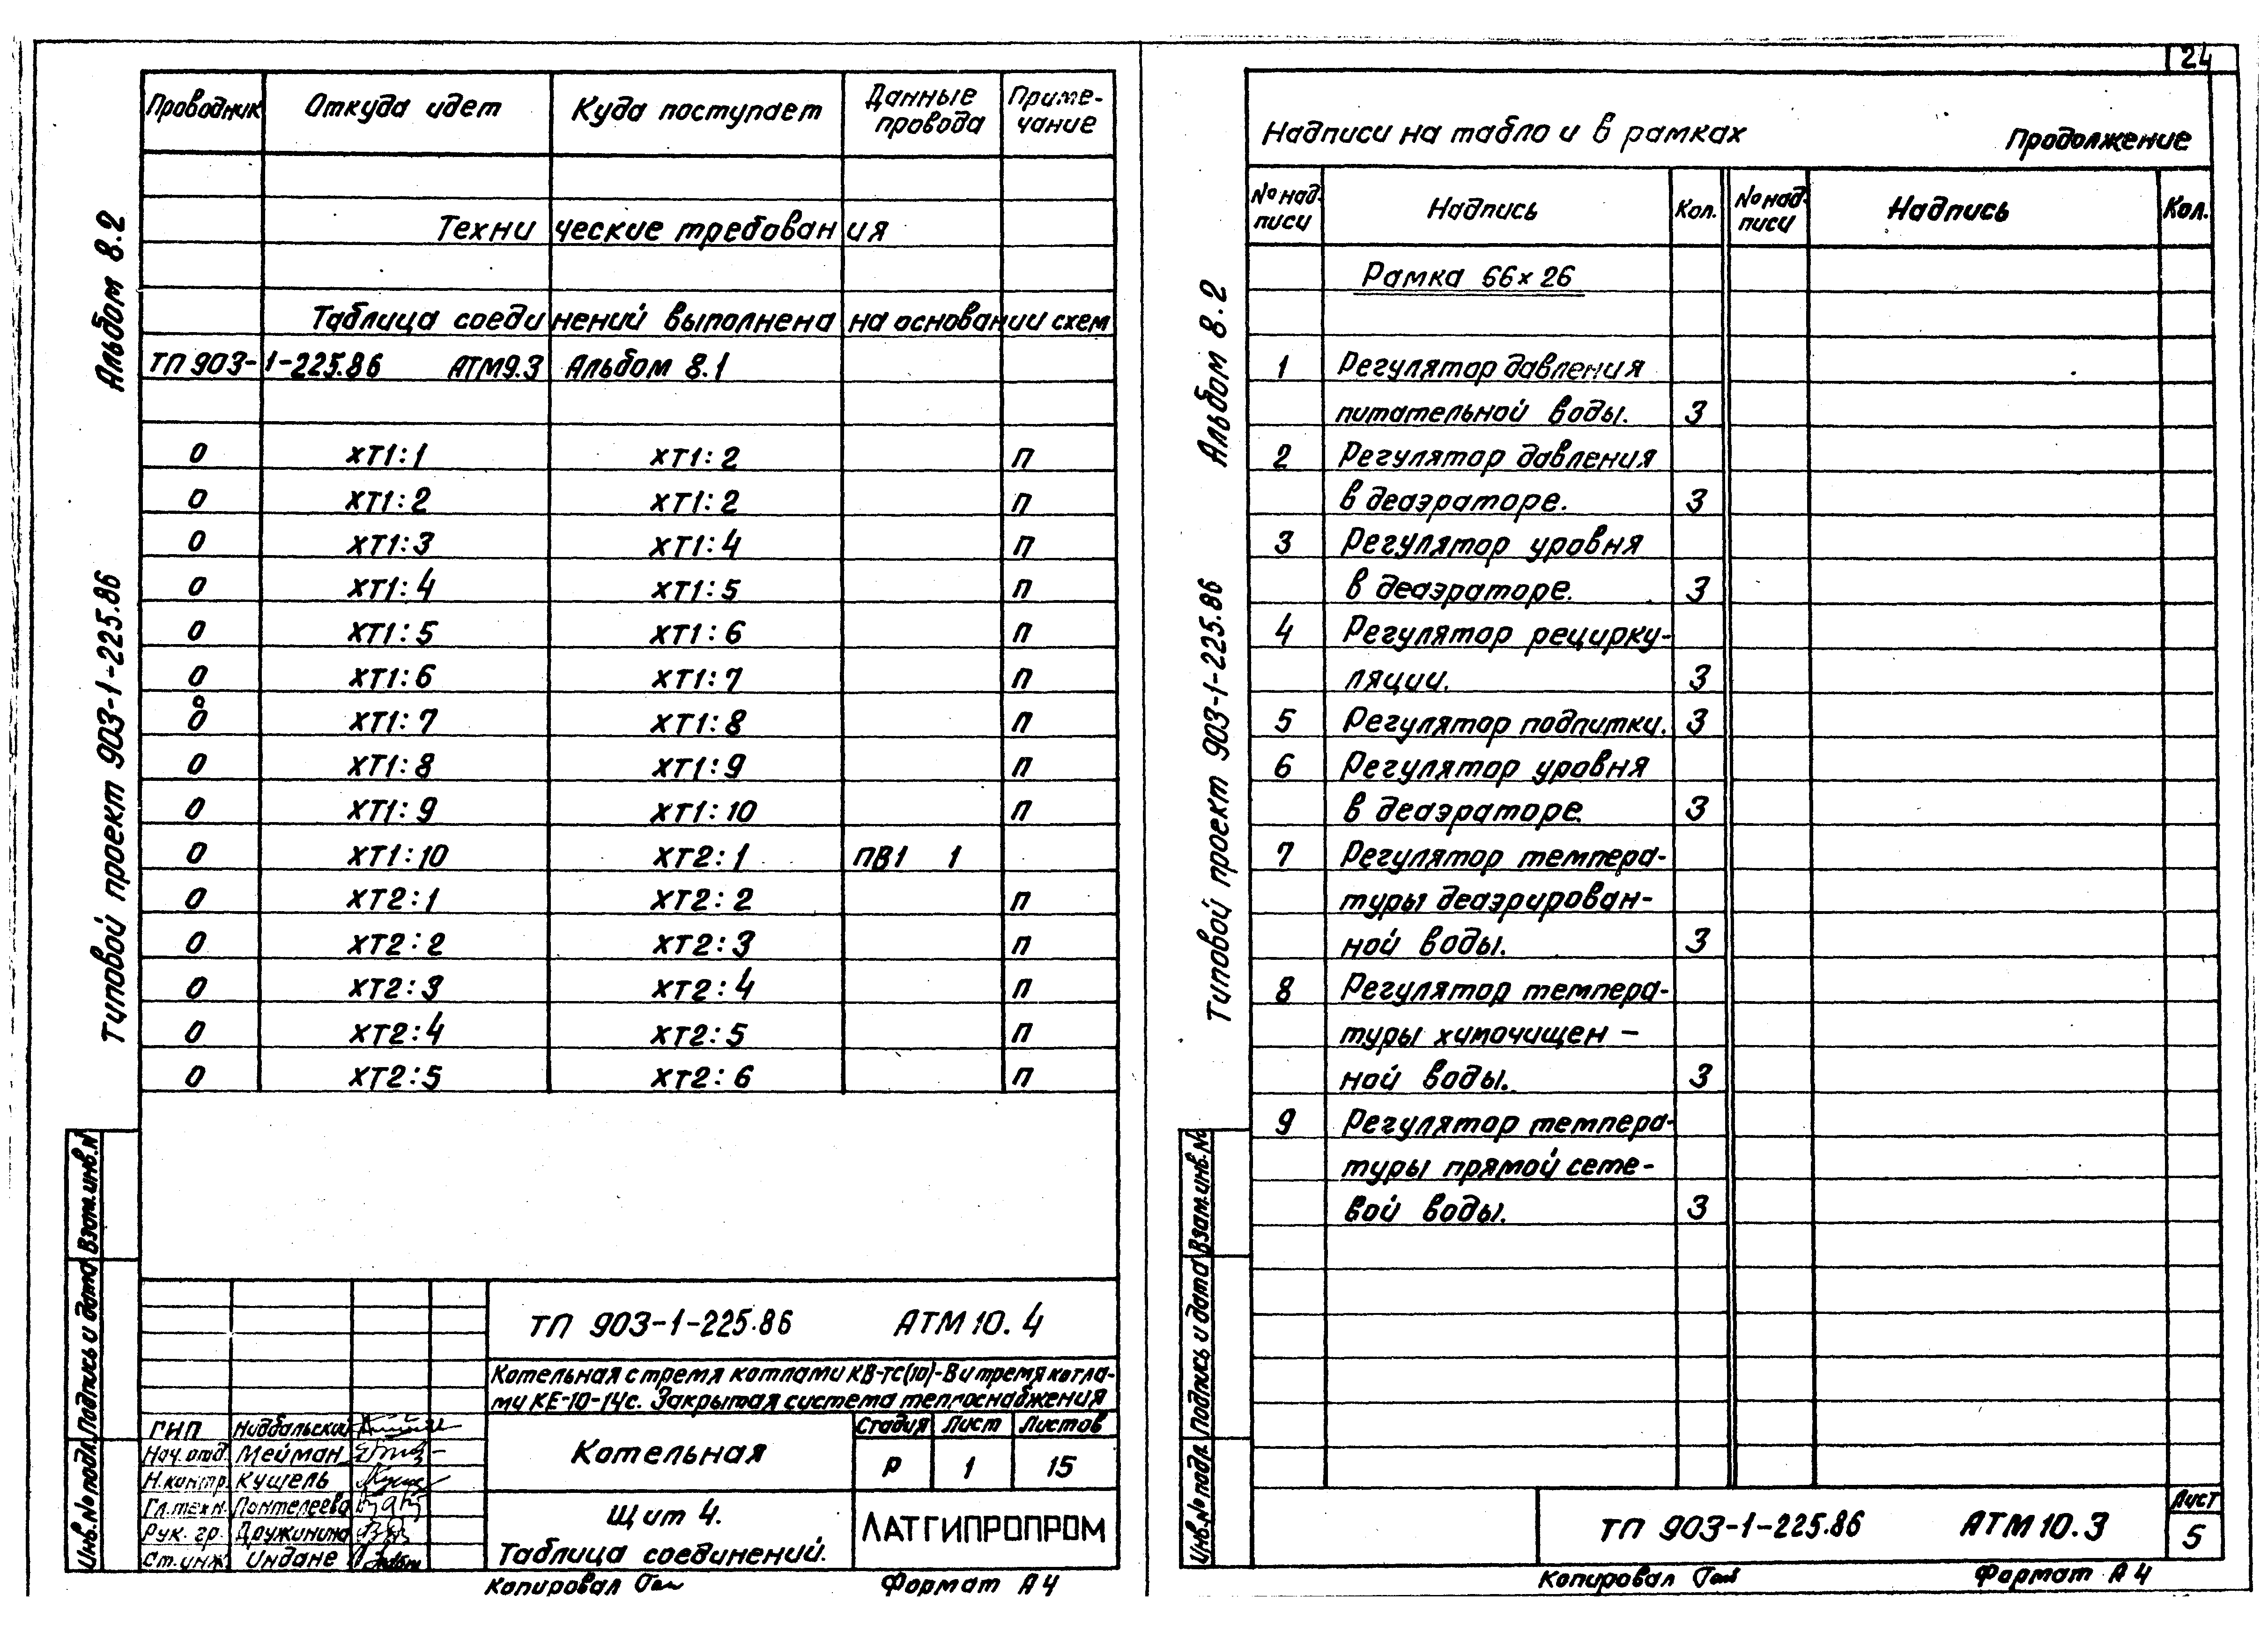 Альбом 8.2
Типовой проект 903-1-225.86
Проводник Откуда идет Куда поступает Данные провода Примечание
Технические требования
Таблица соединений выполнена на основании схем
ТП 903-1-225.86 АТМ9.3 Альбом 8.1
0 ХТ1:1 ХТ1:2 П
0 ХТ1:2 ХТ1:2 П
0 ХТ1:3 ХТ1:4 П
0 ХТ1:4 ХТ1:5 П
0 ХТ1:5 ХТ1:6 П
0 ХТ1:6 ХТ1:7 П
0 ХТ1:7 ХТ1:8 П
0 ХТ1:8 ХТ1:9 П
0 ХТ1:9 ХТ1:10 П
0 ХТ1:10 ХТ2:1 ПВ1 1
0 ХТ2:1 ХТ2:2 П
0 ХТ2:2 ХТ2:3 П
0 ХТ2:3 ХТ2:4 П
0 ХТ2:4 ХТ2:5 П
0 ХТ2:5 ХТ2:6 П
Инв.№подл. Подпись и дата Взам.инв.№
ТП 903-1-225.86 АТМ10.4
Котельная с тремя котлами КВ-ТС(10)-В и тремя котла-
ми КЕ-10-14с. Закрытая система теплоснабжения
ГИП Нидбальский
Нач.отд. Мейман
Н.контр. Кущель
Гл.техн. Пантелеева
Рук. гр. Дружинина
Ст.инж. Индане
Котельная
Стадия Лист Листов
Р 1 15
Щит 4.
Таблица соединений.
ЛАТГИПРОПРОМ
Копировал
Формат А4
24
Альбом 8.2
Типовой проект 903-1-225.86
Надписи на табло и в рамках Продолжение
№ над-писи Надпись Кол. № над-писи Надпись Кол.
Рамка 66×26
1 Регулятор давления
питательной воды. 3
2 Регулятор давления
в деаэраторе. 3
3 Регулятор уровня
в деаэраторе. 3
4 Регулятор рецирку-
ляции. 3
5 Регулятор подпитки. 3
6 Регулятор уровня
в деаэраторе. 3
7 Регулятор темпера-
туры деаэрирован-
ной воды. 3
8 Регулятор темпера-
туры химочищен-
ной воды. 3
9 Регулятор темпера-
туры прямой сете-
вой воды. 3
Инв.№подл. Подпись и дата Взам.инв.№
ТП 903-1-225.86 АТМ10.3
Лист
5
Копировал
Формат А4